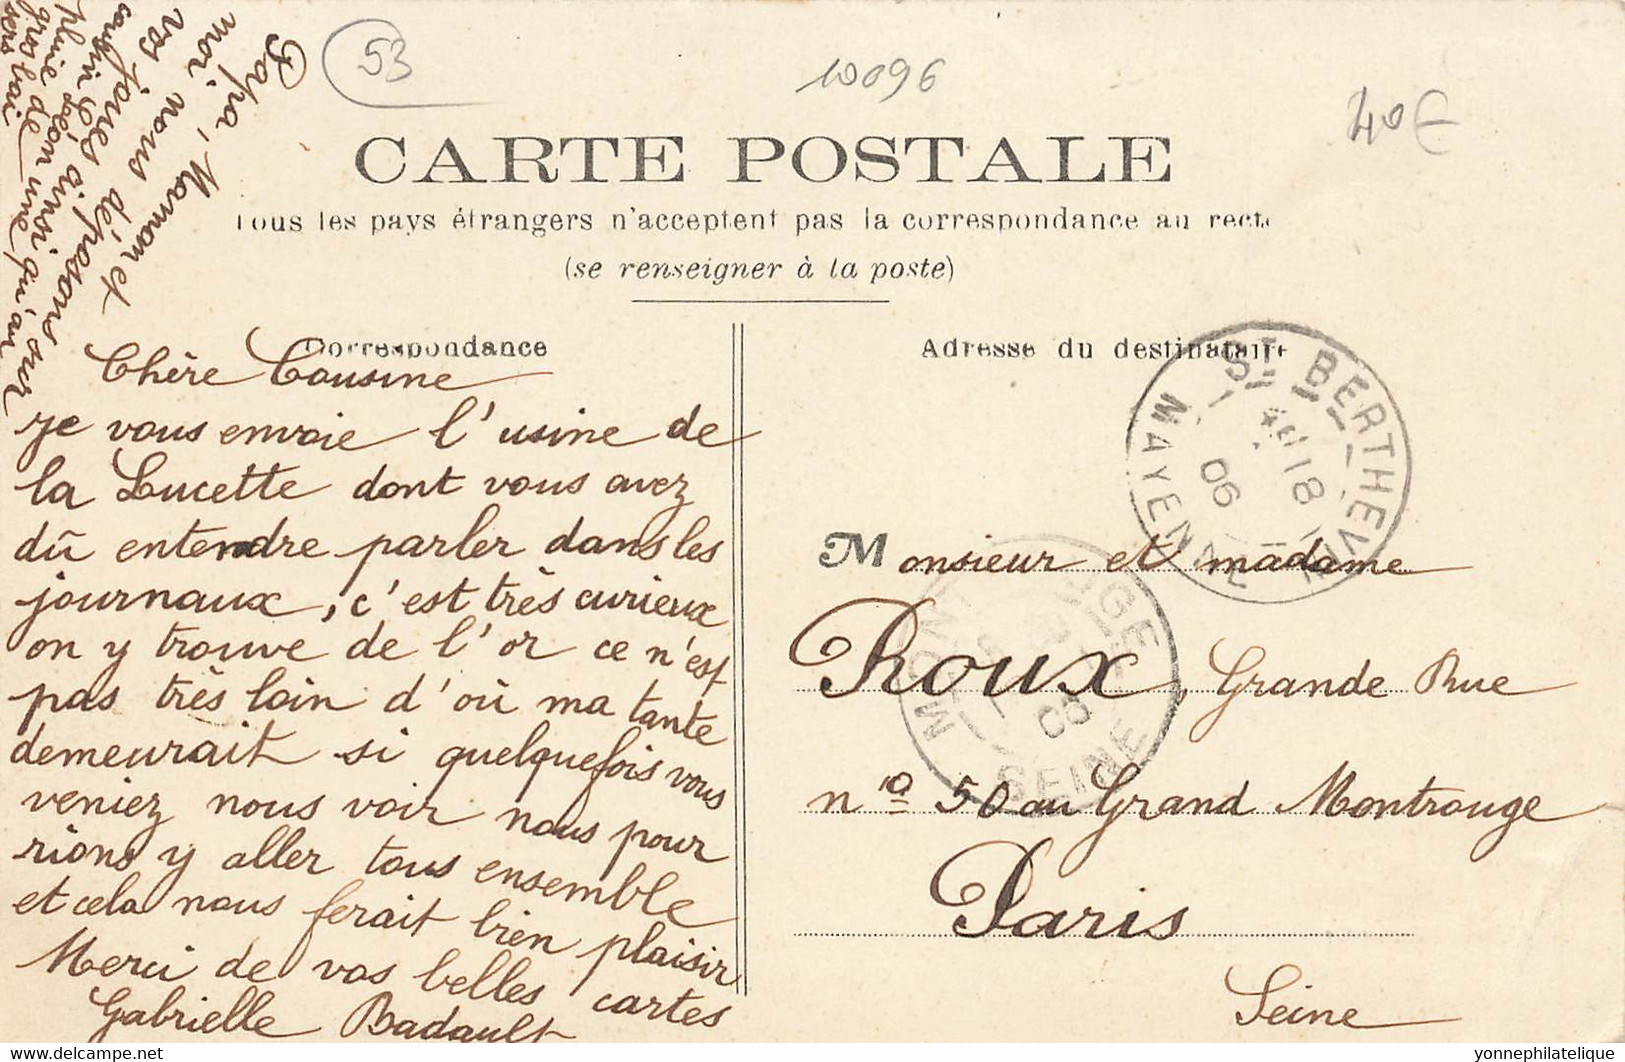 53
10096
40€
CARTE POSTALE
Tous les pays étrangers n'acceptent pas la correspondance au recto
(se renseigner à la poste)
Correspondance
Adresse du destinataire
Chère Cousine
je vous envoie l'usine de
la Lucette dont vous avez
dû entendre parler dans les
journaux, c'est très curieux
on y trouve de l'or ce n'est
pas très loin d'où ma tante
demeurait si quelquefois vous
veniez nous voir nous pour
rions y aller tous ensemble
et cela nous ferait bien plaisir
Merci de vos belles cartes
Gabrielle Badault
Papa, Maman et
moi, nous déposons sur
vos joues ainsi qu'au
cousin Léon une
pluie de
gros bai
sers
Monsieur et madame
Roux, Grande Rue
n° 50 au Grand Montrouge
Paris
Seine
ST BERTHEVIN
MAYENNE
18
06
MONTROUGE
SEINE
06
yonnephilatelie.com